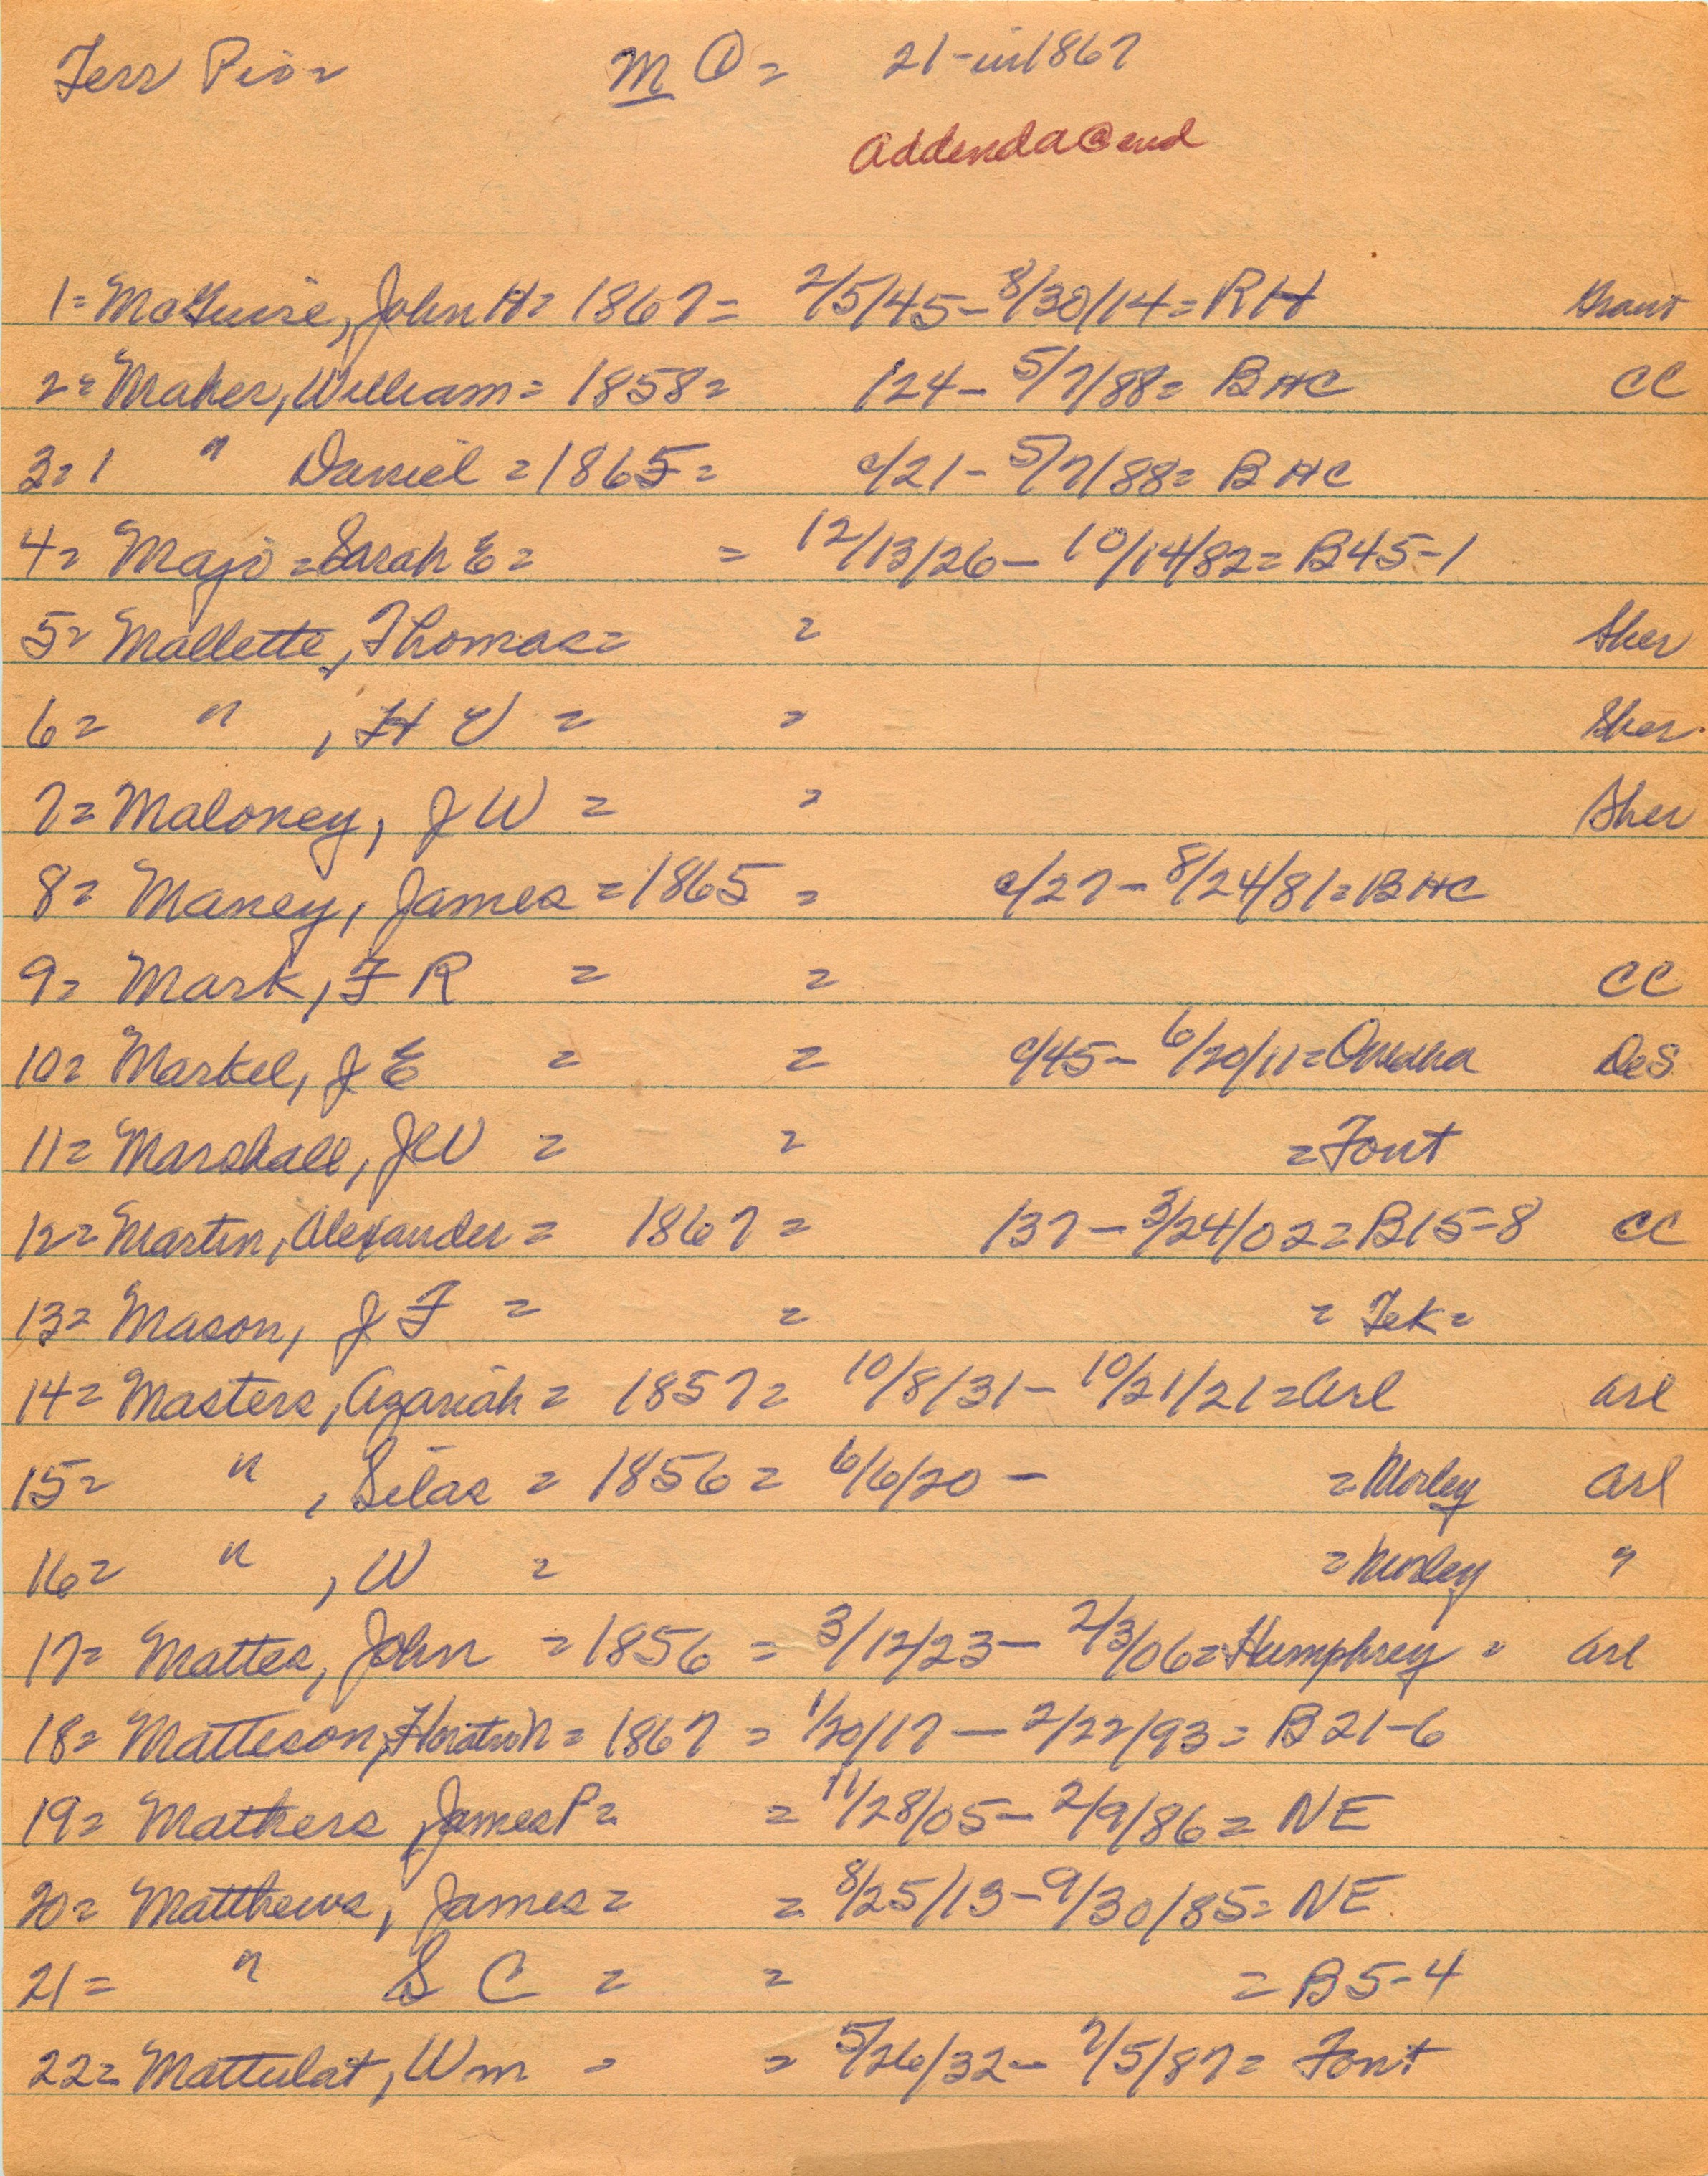 Terr Pio= M ①= 21-in1867
Addenda@end
1= McGuire, John H= 1867= 2/5/45-8/30/14=RH Grant
2= Maher, William= 1858= /24-5/7/88= BHC CC
3=1 " Daniel =1865= c/21-5/7/88= BHC
4= Majo =Sarah E= = 12/13/26-10/14/82= B45-1
5= Mallette, Thomas= = Sher
6= " , H V = = Sher
7= Maloney, J W = = Sher
8= Maney, James =1865 = c/27-8/24/81=BHC
9= Mark, F R = = CC
10= Markel, J E = = c/45-6/20/11=Omaha DeS
11= Marshall, J W = = =Font
12= Martin, Alexander = 1867= /37-3/24/02=B15-8 CC
13= Mason, J F = = = Tek=
14= Masters, Azariah = 1857= 10/8/31-10/21/21=Arl Arl
15= " , Silas = 1856= 6/6/20 - =Morley Arl
16= " , W = =Morley "
17= Mattes, John =1856 = 3/12/23-2/3/06=Humphrey = Arl
18= Matteson, Horatio N= 1867 = 1/20/17-2/22/93= B21-6
19= Mathers, James P= = 11/28/05-2/9/86= NE
20= Matthews, James= = 8/25/13-9/30/85= NE
21= " S C = = = B5-4
22= Mattulat, Wm = = 5/26/32-7/5/87= Font